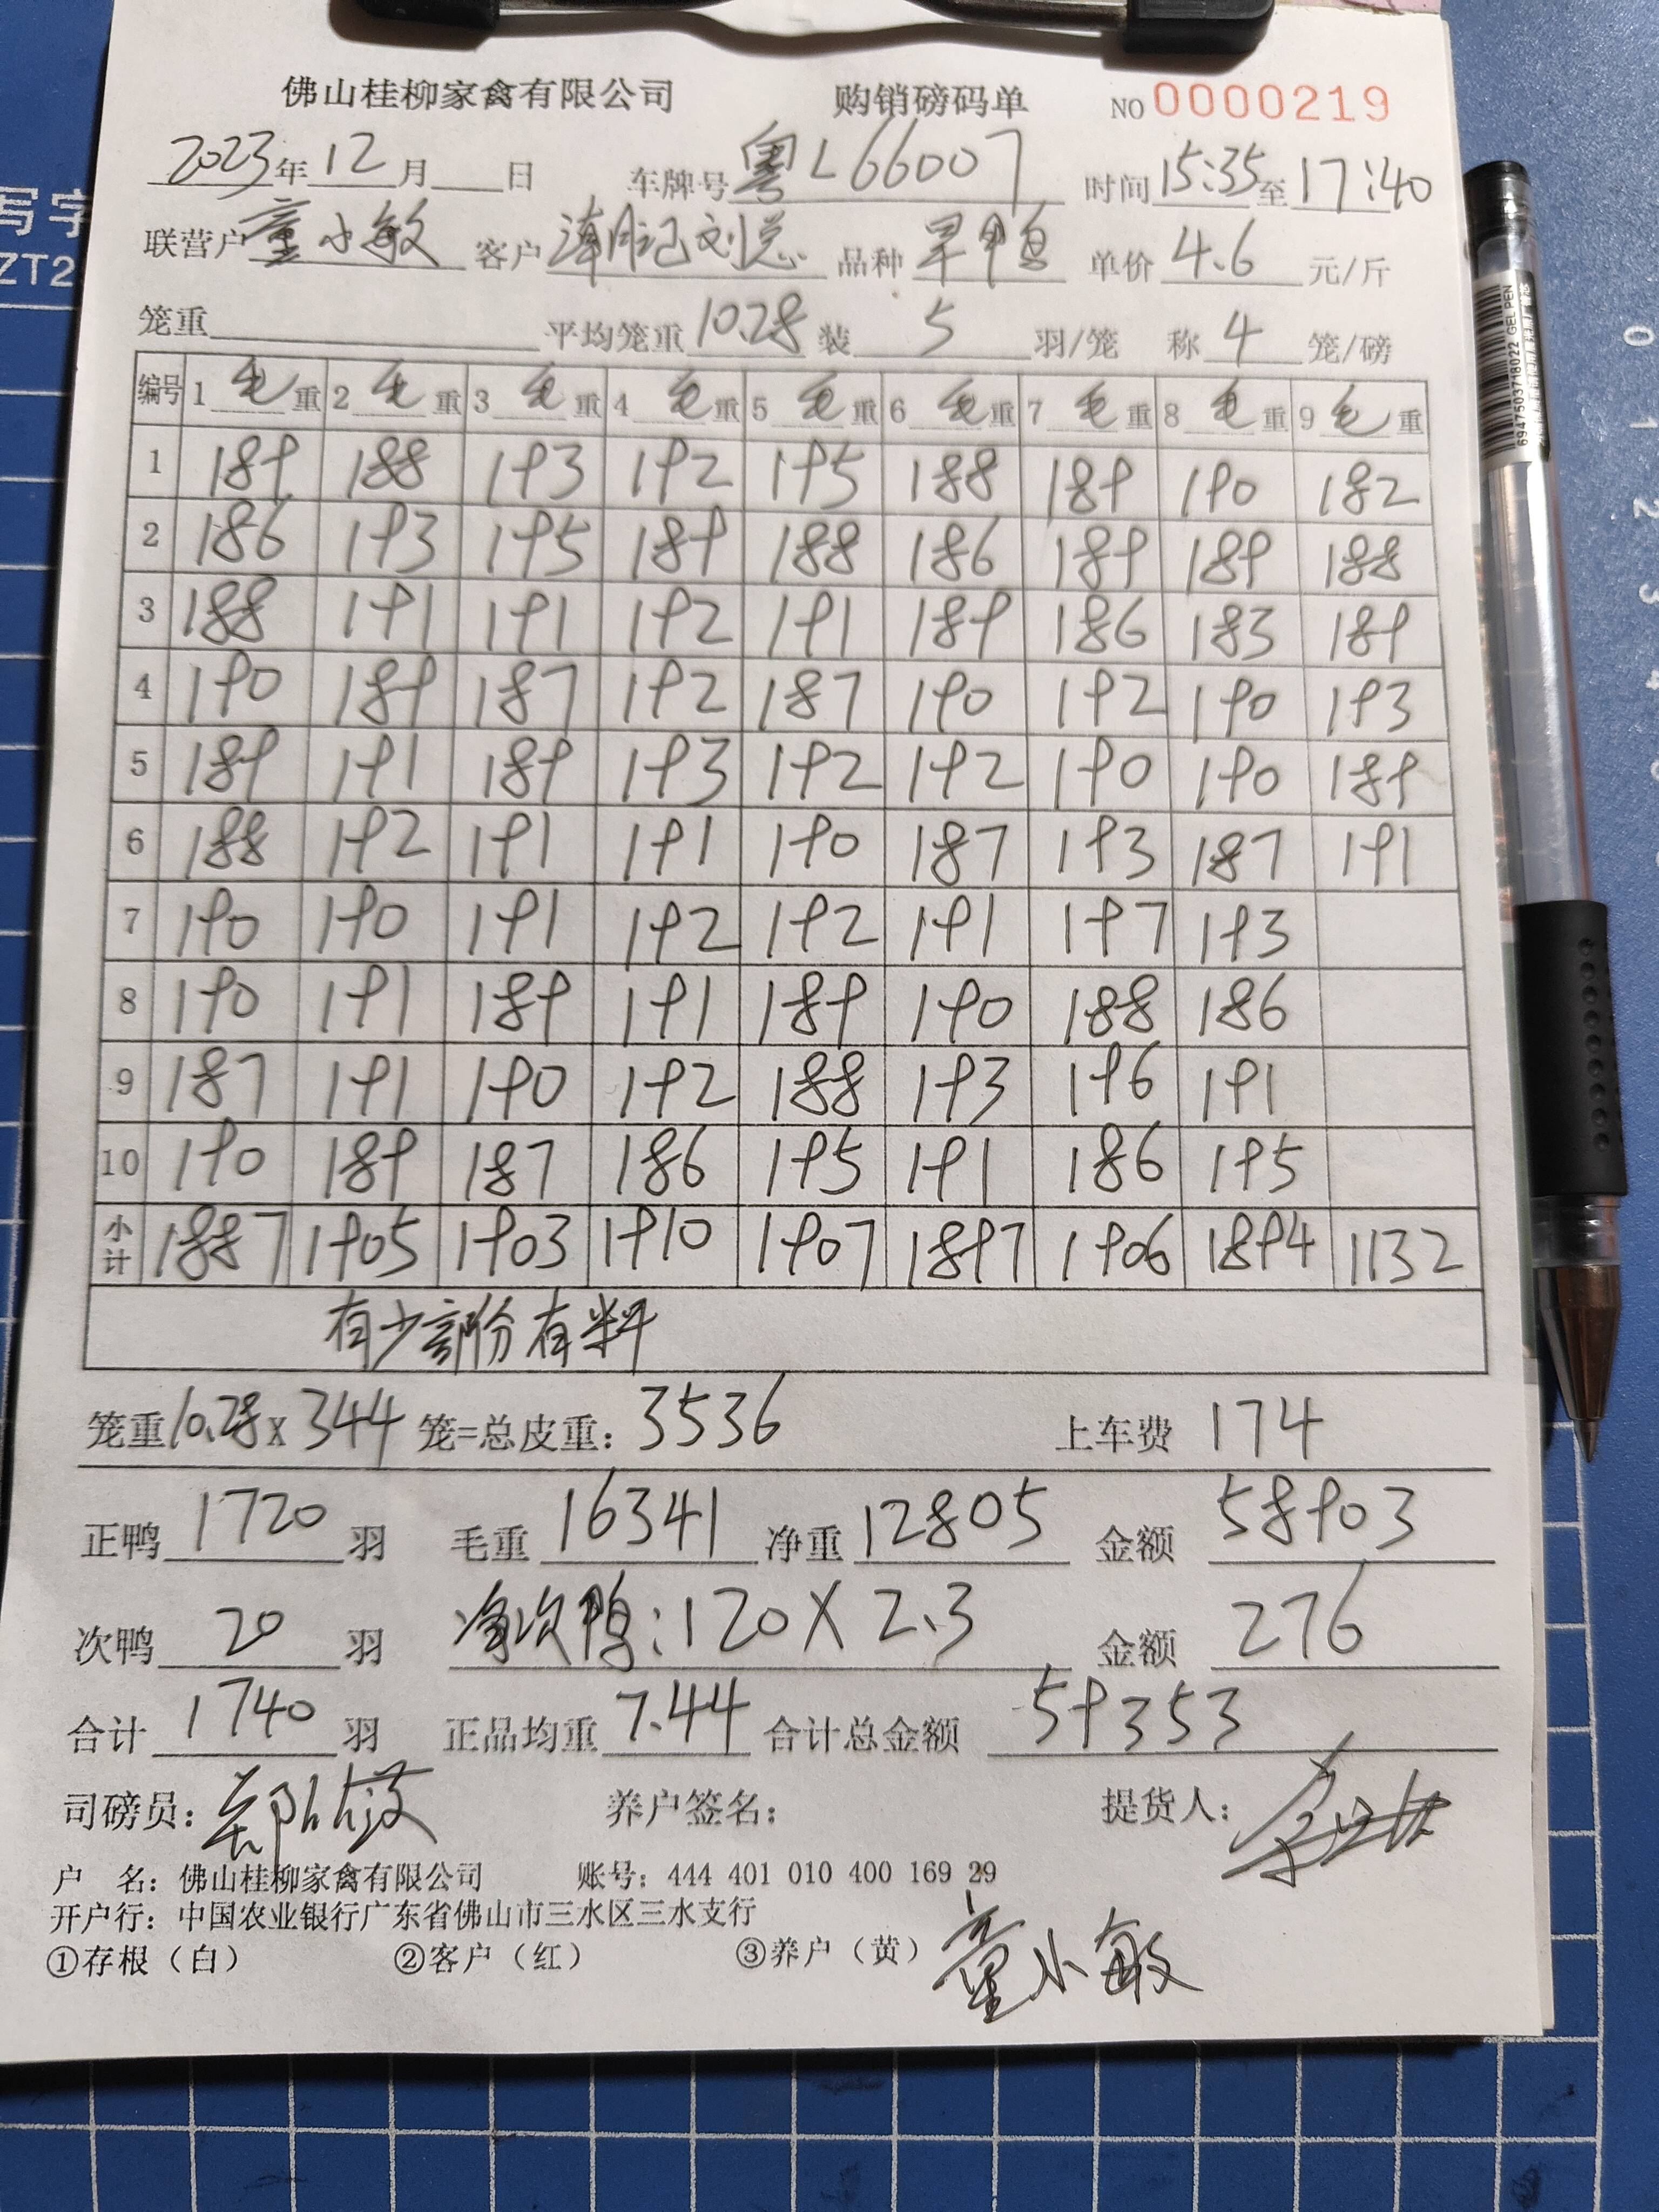 佛山桂柳家禽有限公司 购销磅码单 NO 0000219
2023年12月 日 车牌号粤L66007 时间15:35至17:40
联营户童小敏 客户潮记刘总 品种旱甲鸟 单价4.6元/斤
笼重 平均笼重10.28装5羽/笼 称4笼/磅
编号 1毛重 2毛重 3毛重 4毛重 5毛重 6毛重 7毛重 8毛重 9毛重
1 189 188 193 192 195 188 189 190 182
2 186 193 195 189 188 186 189 189 188
3 188 191 191 192 191 189 186 183 189
4 190 189 187 192 187 190 192 190 193
5 189 191 189 193 192 192 190 190 189
6 188 192 191 191 190 187 193 187 191
7 190 190 191 192 192 191 197 193
8 190 191 189 191 189 190 188 186
9 187 191 190 192 188 193 196 191
10 190 189 187 186 195 191 186 195
小计 1887 1905 1903 1910 1907 1897 1906 1894 1132
有少部份有料
笼重10.28X344笼=总皮重：3536 上车费 174
正鸭1720羽 毛重16341净重12805 金额58903
次鸭20羽 净次鸭：120X2.3 金额276
合计1740羽 正品均重7.44合计总金额59353
司磅员： 养户签名： 提货人：
户 名：佛山桂柳家禽有限公司 账号：444 401 010 400 169 29
开户行：中国农业银行广东省佛山市三水区三水支行
①存根（白） ②客户（红） ③养户（黄） 童小敏
写字
ZT2
6947503718022 GEL PEN
0 1 2 3 4